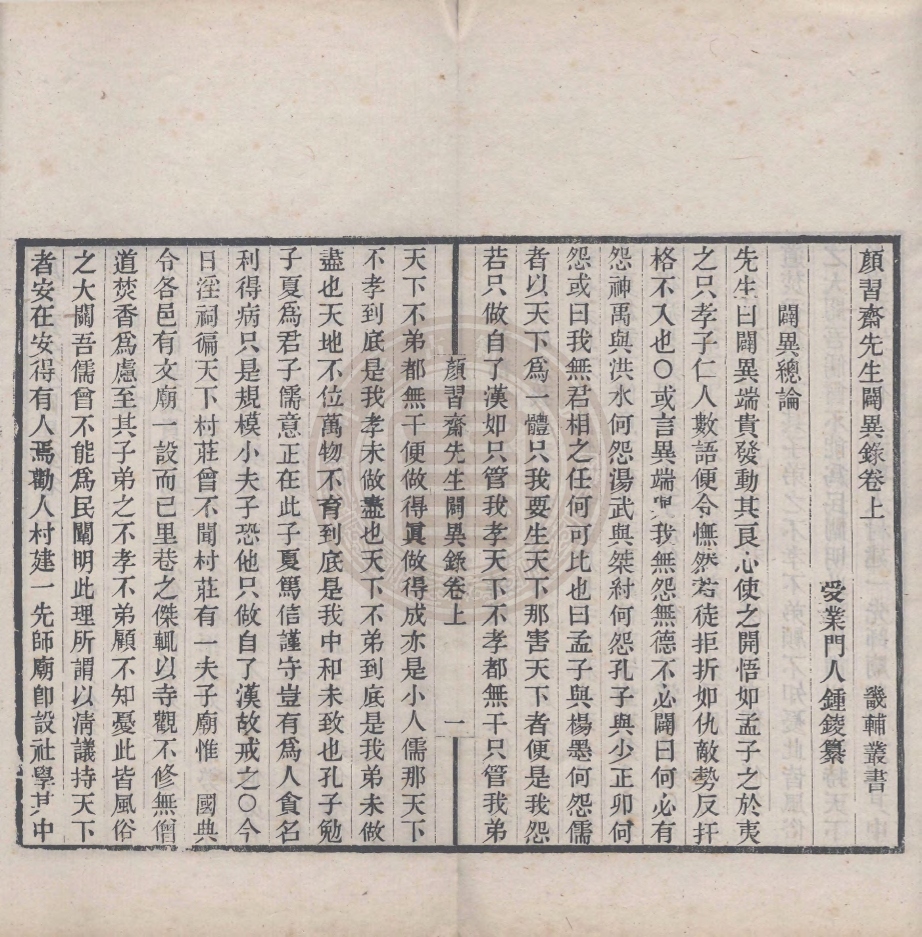 顏習齋先生闢異錄卷上 畿輔叢書
受業門人鍾錂纂
闢異總論
先生曰闢異端貴發動其良心使之開悟如孟子之於夷
之只孝子仁人數語便令憮然若徒拒折如仇敵勢反扞
格不入也○或言異端與我無怨無德不必闢曰何必有
怨神禹與洪水何怨湯武與桀紂何怨孔子與少正卯何
怨或曰我無君相之任何可比也曰孟子與楊墨何怨儒
者以天下爲一體只我要生天下那害天下者便是我怨
若只做自了漢如只管我孝天下不孝都無干只管我弟
顏習齋先生闢異錄卷上 一
天下不弟都無干便做得眞做得成亦是小人儒那天下
不孝到底是我孝未做盡也天下不弟到底是我弟未做
盡也天地不位萬物不育到底是我中和未致也孔子勉
子夏爲君子儒意正在此子夏篤信謹守豈有爲人貪名
利得病只是規模小夫子恐他只做自了漢故戒之○今
日淫祠徧天下村莊曾不聞村莊有一夫子廟惟 國典
令各邑有文廟一設而已里巷之傑輒以寺觀不修無僧
道焚香爲慮至其子弟之不孝不弟顧不知憂此皆風俗
之大關吾儒曾不能爲民闡明此理所謂以清議持天下
者安在安得有人焉勸人村建一先師廟卽設社學其中